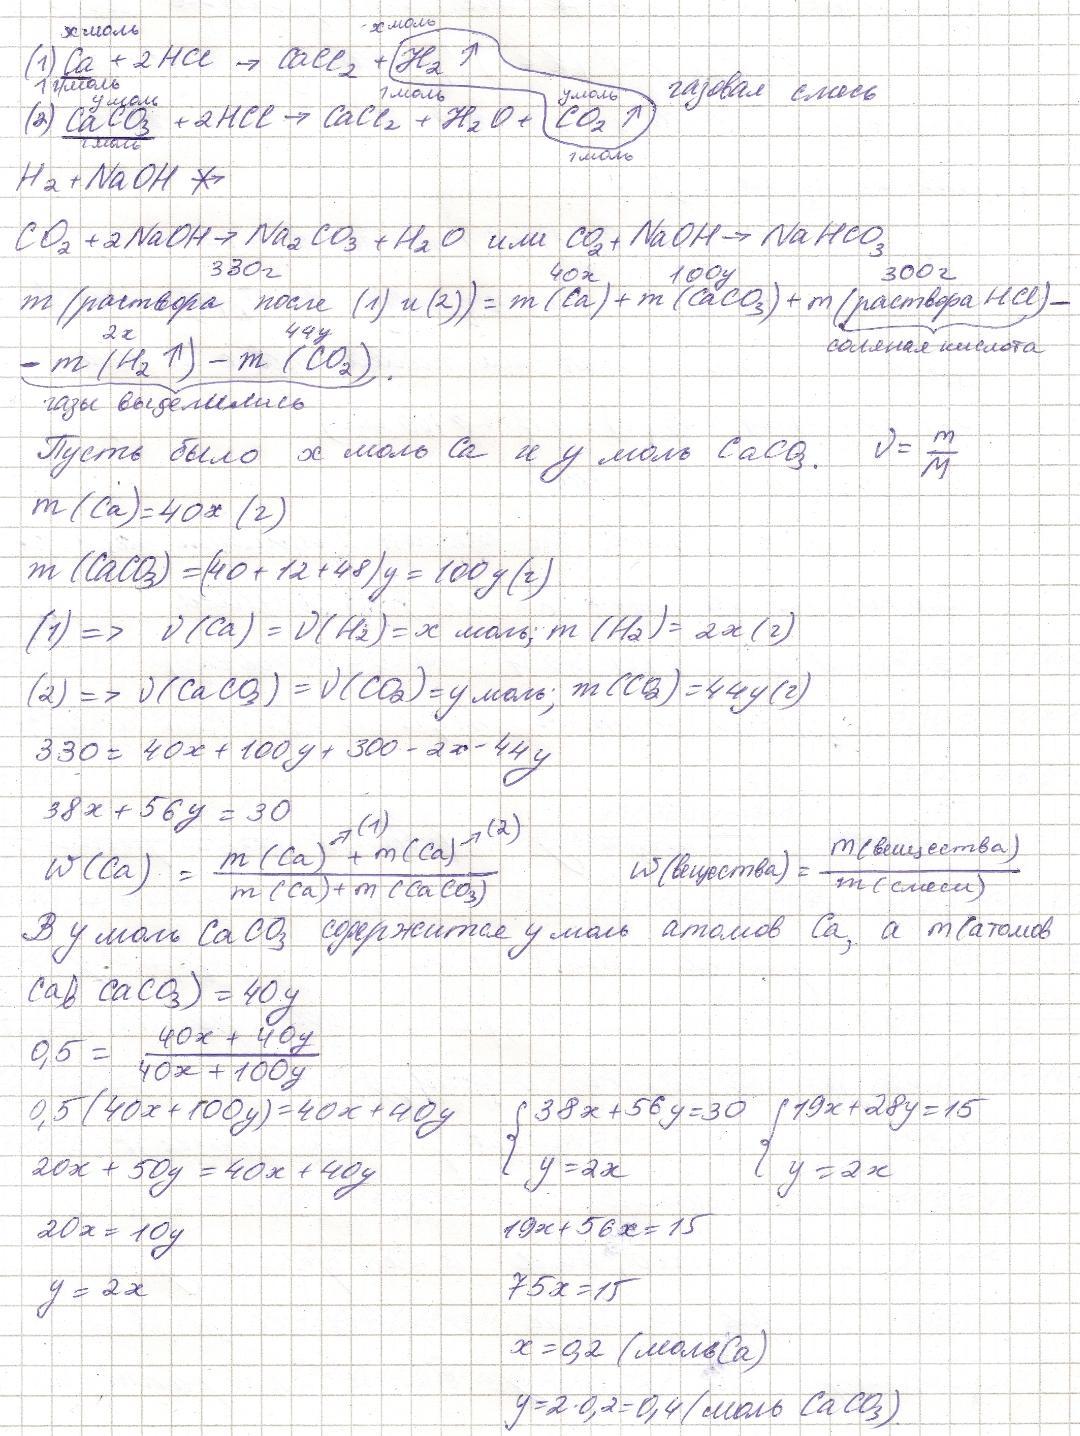 x моль x моль
(1) Ca + 2HCl → CaCl₂ + H₂↑
1 моль 1 моль газовая смесь
y моль y моль
(2) CaCO₃ + 2HCl → CaCl₂ + H₂O + CO₂↑
1 моль 1 моль
H₂ + NaOH ↛
CO₂ + 2NaOH → Na₂CO₃ + H₂O или CO₂ + NaOH → NaHCO₃
330г 40x 100y 300г
m (раствора после (1) и (2)) = m (Ca) + m (CaCO₃) + m (раствора HCl) –
2x 44y соляная кислота
– m (H₂↑) – m (CO₂).
газы выделились
Пусть было x моль Ca и y моль CaCO₃. ν = m/M
m (Ca) = 40x (г)
m (CaCO₃) = (40 + 12 + 48) y = 100y (г)
(1) => ν (Ca) = ν (H₂) = x моль; m (H₂) = 2x (г)
(2) => ν (CaCO₃) = ν (CO₂) = y моль; m (CO₂) = 44y (г)
330 = 40x + 100y + 300 - 2x - 44y
38x + 56y = 30
W (Ca) = (m (Ca) →(1) + m (Ca) →(2)) / (m (Ca) + m (CaCO₃)) W (вещества) = m (вещества) / m (смеси)
В y моль CaCO₃ содержится y моль атомов Ca, а m (атомов
Ca в CaCO₃) = 40y
0,5 = (40x + 40y) / (40x + 100y)
0,5 (40x + 100y) = 40x + 40y { 38x + 56y = 30 { 19x + 28y = 15
20x + 50y = 40x + 40y y = 2x y = 2x
20x = 10y 19x + 56x = 15
y = 2x 75x = 15
x = 0,2 (моль Ca)
y = 2·0,2 = 0,4 (моль CaCO₃)